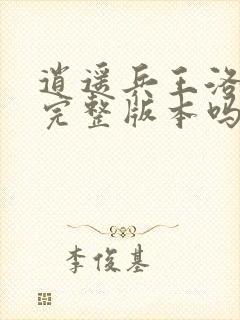 逍遥兵王洛
完整版本吗
李俊基